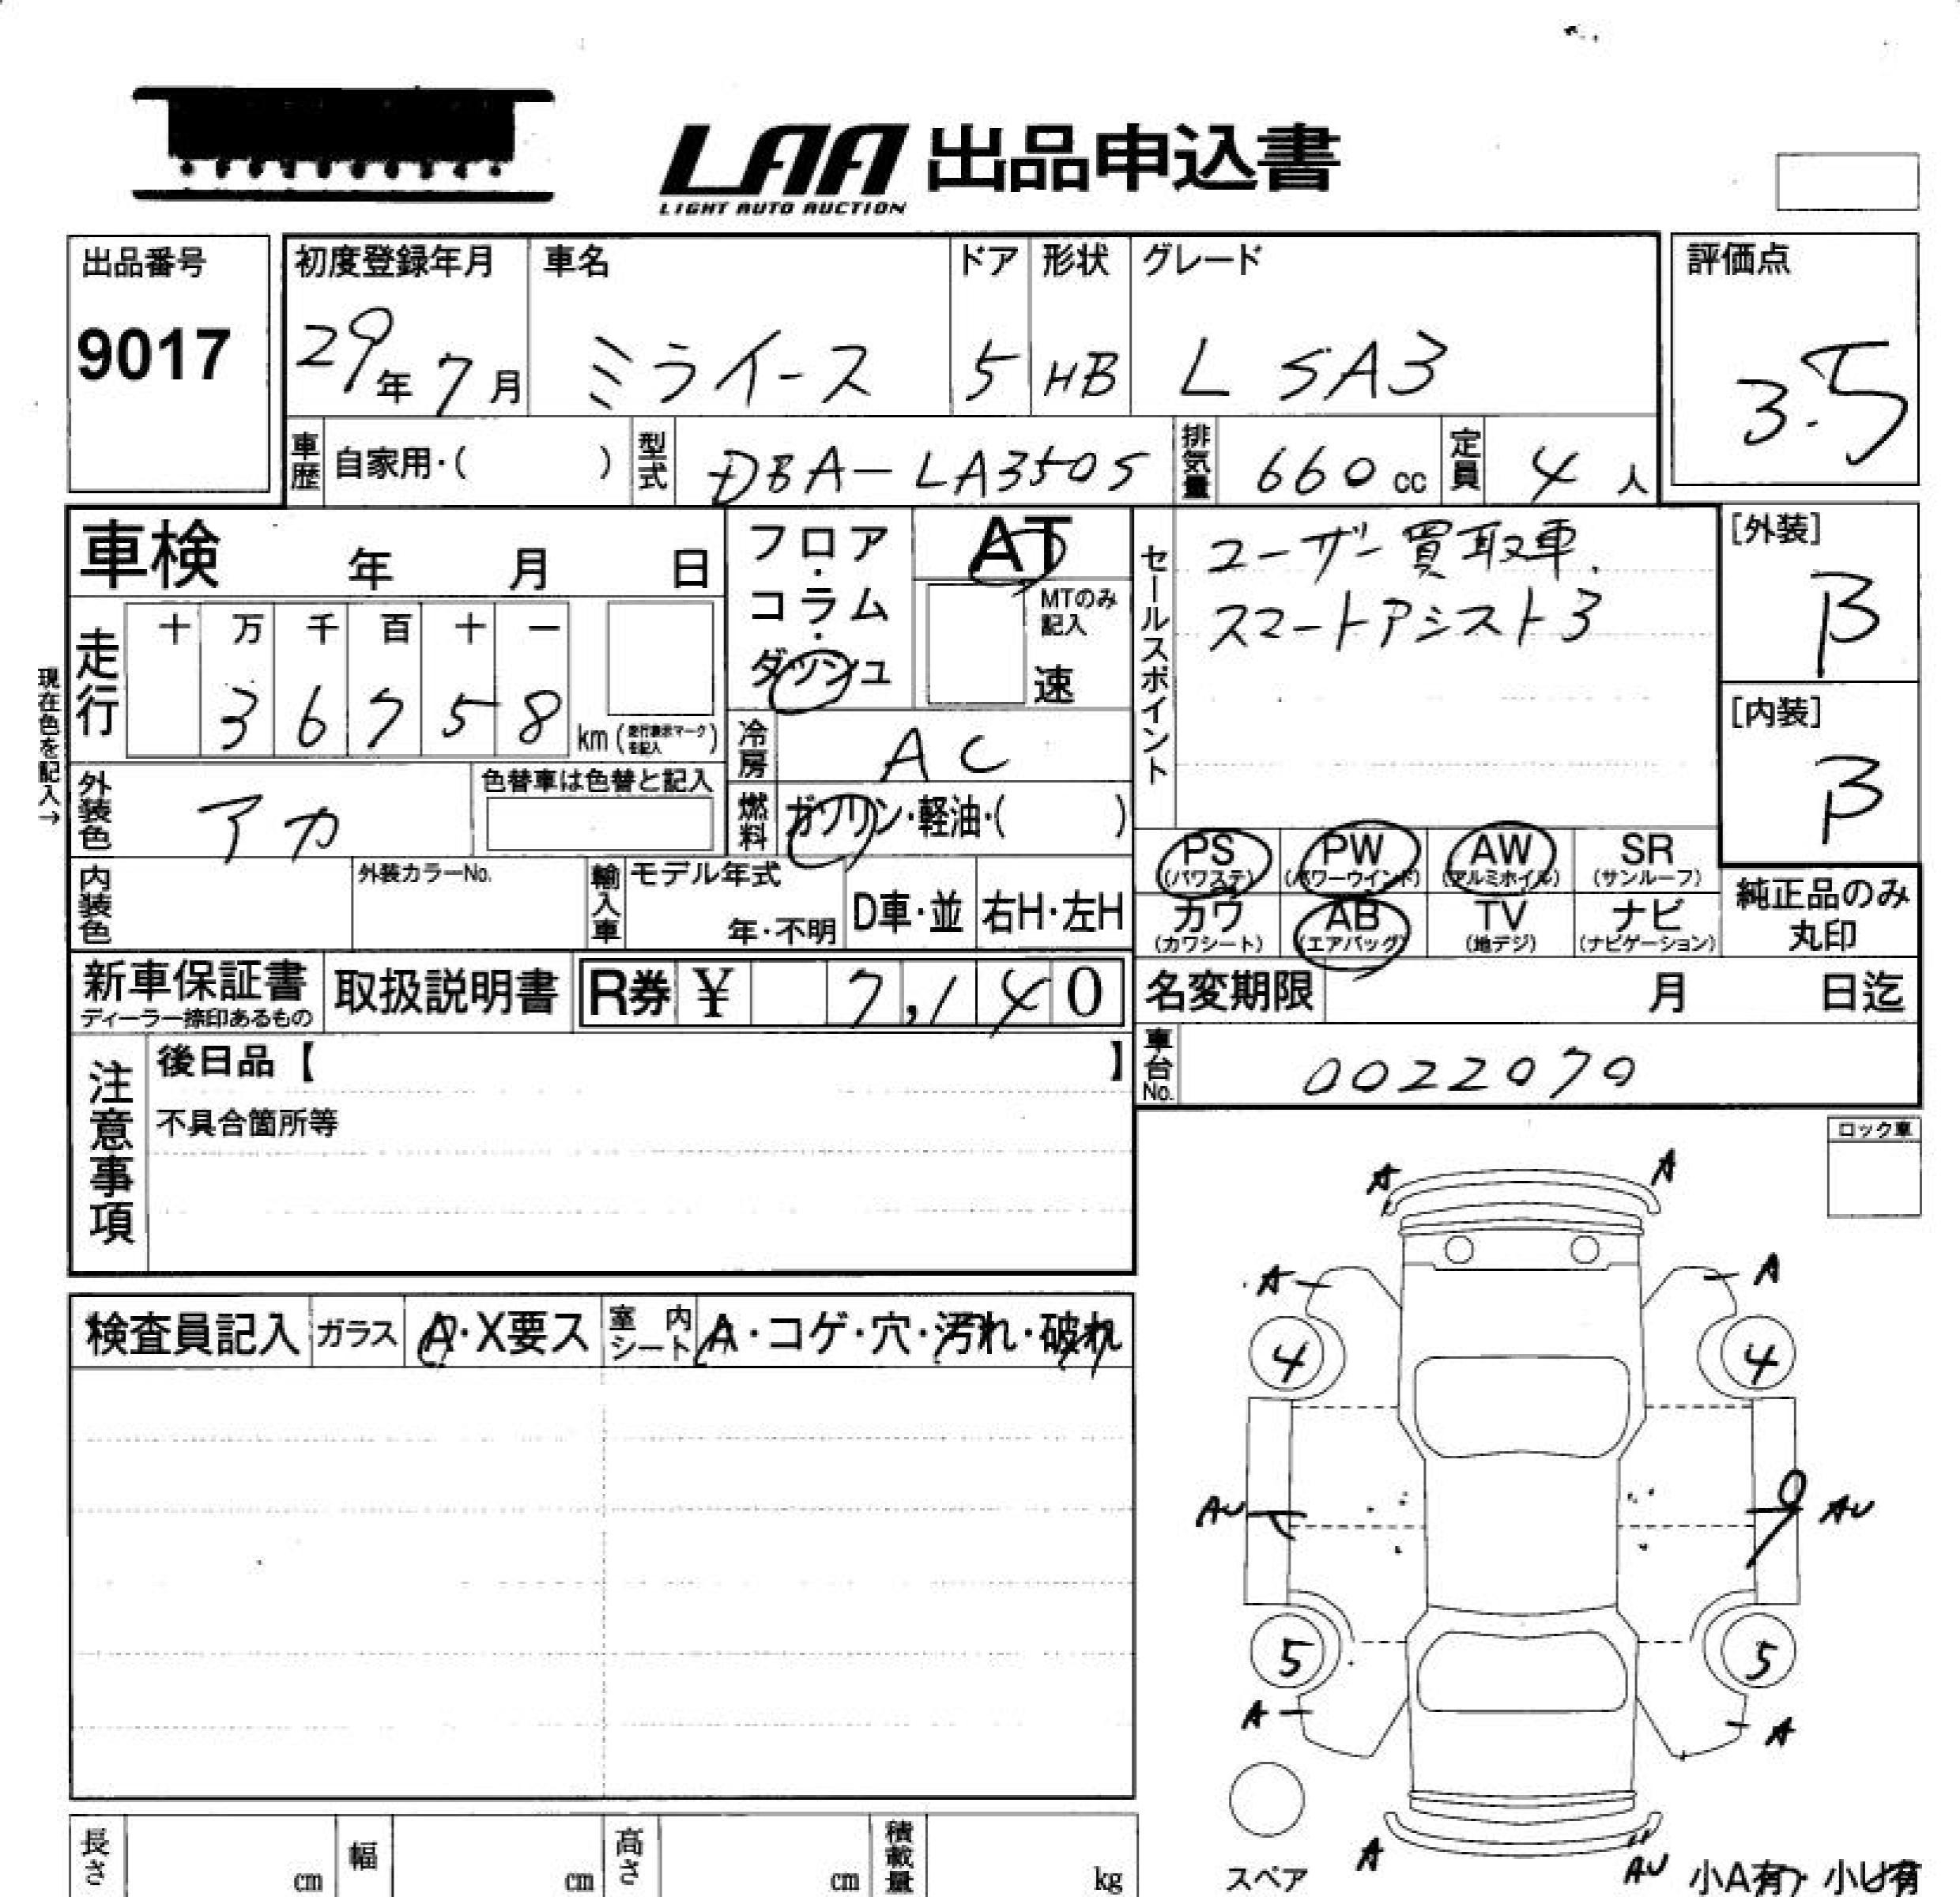 LAA 出品申込書
LIGHT AUTO AUCTION
出品番号
9017
初度登録年月
29年7月
車名
ミライース
ドア
5
形状
HB
グレード
L SA3
評価点
3.5
車歴 自家用・( )
型式 DBA-LA350S
排気量 660cc
定員 4人
車検 年 月 日
フロア・コラム・ダッシュ
AT
MTのみ記入
速
セールスポイント
ユーザー買取車.
スマートアシスト3
[外装]
B
[内装]
B
現在色を記入→
走行
十 万 千 百 十 一
3 6 7 5 8 km (走行表示マークを記入)
冷房 AC
外装色 アカ
色替車は色替と記入
燃料 ガソリン・軽油・( )
内装色
外装カラーNo.
輸入車 モデル年式
年・不明
D車・並
右H・左H
PS (パワステ)
PW (パワーウインド)
AW (アルミホイル)
SR (サンルーフ)
カワ (カワシート)
AB (エアバッグ)
TV (地デジ)
ナビ (ナビゲーション)
純正品のみ
丸印
新車保証書
ディーラー捺印あるもの
取扱説明書
R券 ¥ 7,140
名変期限 月 日迄
車台No. 0022070
注意事項
後日品【 】
不具合箇所等
ロック車
検査員記入
ガラス A・X要ス
室内シート A・コゲ・穴・汚れ・破れ
A A
A A
4 4
AU AU
5 5
A A
スペア
A AU
小A有 小U有
長さ cm
幅 cm
高さ cm
積載量 kg